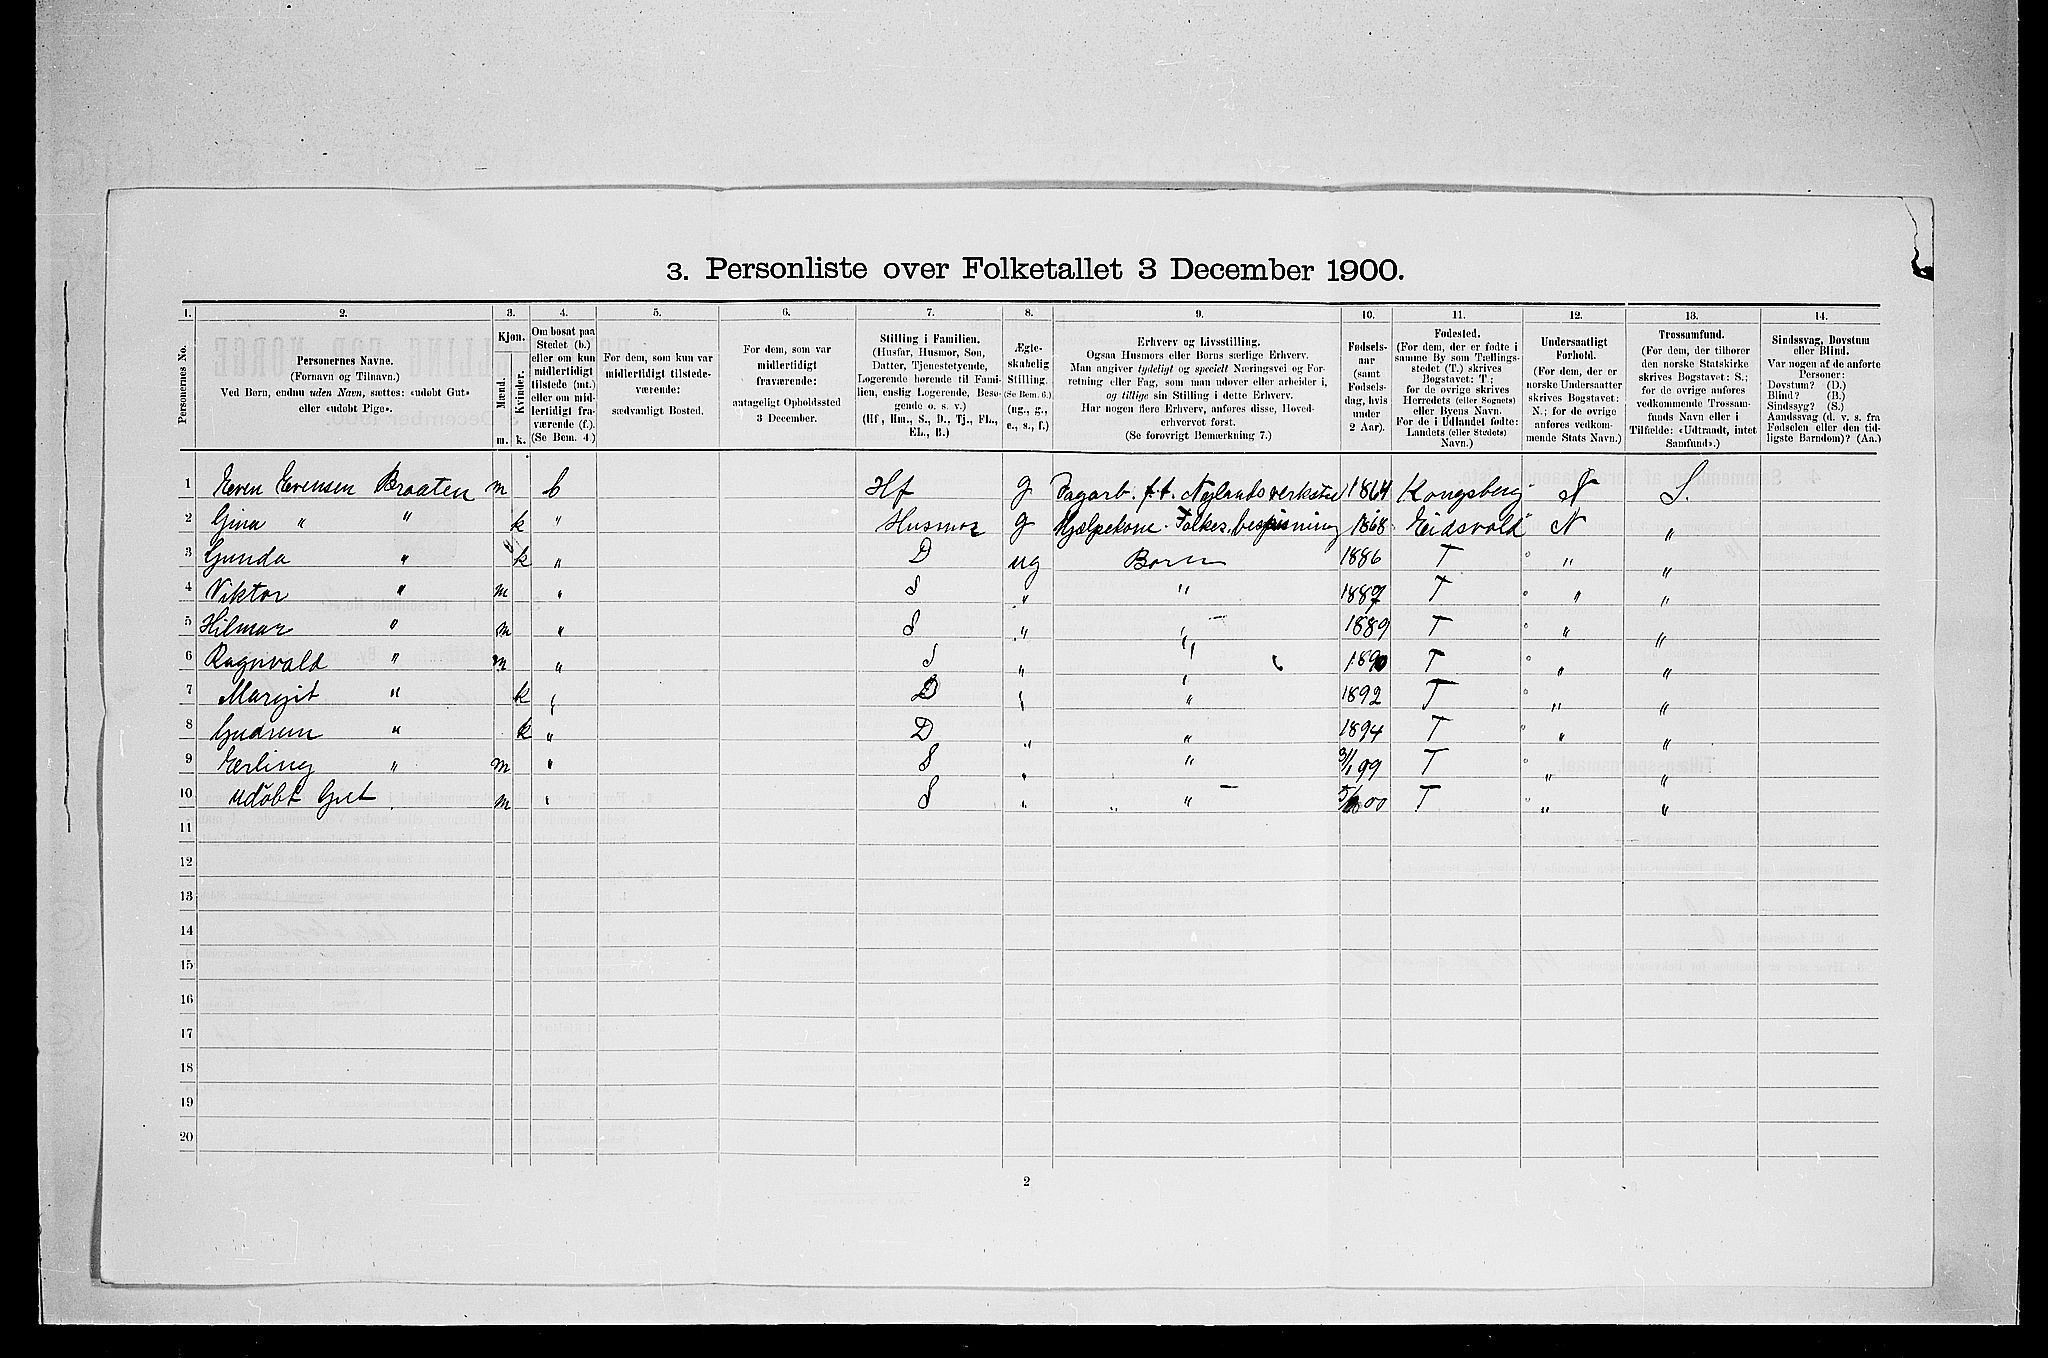 3. Personliste over Folketallet 3 December 1900.
1. 2. 3. 4. 5. 6. 7. 8. 9. 10. 11. 12. 13. 14.
Personernes No.
Personernes Navne.
(Fornavn og Tilnavn.)
Ved Børn, endnu uden Navn, sættes: «udøbt Gut»
eller «udøbt Pige».
Kjøn.
Mænd. Kvinder.
m. k.
Om bosat paa
Stedet (b.)
eller om kun
midlertidigt
tilstede (mt.)
eller om mid-
lertidigt fra-
værende (f.).
(Se Bem. 4.)
For dem, som kun var
midlertidigt tilstede-
værende:
sædvanligt Bosted.
For dem, som var
midlertidigt
fraværende:
antageligt Opholdssted
3 December.
Stilling i Familien.
(Husfar, Husmor, Søn,
Datter, Tjenestetyende,
Logerende hørende til Fami-
lien, enslig Logerende, Besø-
gende o. s. v.)
(Hf, Hm., S., D., Tj., FL.,
EL., B.)
Ægte-
skabelig
Stilling.
(Se Bem. 6.)
(ug., g.,
e., s., f.)
Erhverv og Livsstilling.
Ogsaa Husmors eller Børns særlige Erhverv.
Man angiver tydeligt og specielt Næringsvei og For-
retning eller Fag, som man udøver eller arbeider i,
og tillige sin Stilling i dette Erhverv.
Har nogen flere Erhverv, anføres disse, Hoved-
erhvervet først.
(Se forøvrigt Bemærkning 7.)
Fødsels-
aar
(samt
Fødsels-
dag, hvis
under
2 Aar).
Fødested.
(For dem, der er fødte i
samme By som Tællings-
stedet (T.) skrives
Bogstavet: T.;
for de øvrige skrives
Herredets (eller Sognets)
eller Byens Navn.
For de i Udlandet fødte:
Landets (eller Stedets)
Navn.)
Undersaatligt
Forhold.
(For dem, der er
norske Undersaatter
skrives Bogstavet:
N.; for de øvrige
anføres vedkom-
mende Stats Navn.)
Trossamfund.
(For dem, der tilhører
den norske Statskirke
skrives Bogstavet: S.;
for de øvrige anføres
vedkommende Trossam-
funds Navn eller i
Tilfælde: «Udtraadt, intet
Samfund».)
Sindssvag, Døvstum
eller Blind.
Var nogen af de anførte
Personer:
Døvstum? (D.)
Blind? (B.)
Sindssyg? (S.)
Aandssvag (d. v. s. fra
Fødselen eller den tid-
ligste Barndom)? (Aa.)
1 Even Evensen Braaten m b Hf g Dagarb. f.t. Nylandsverksted 1864 Kongsberg N S.
2 Gina " " k " Husmor g Hjælpekone. Folkes.bespisning 1868 Eidsvold N "
3 Gunda " k " D ug Barn 1886 T " "
4 Viktor " m " S " " 1887 T " "
5 Hilmar " m " S " " 1889 T " "
6 Ragnvald " m " S " " 1890 T " "
7 Margit " k " D " " 1892 T " "
8 Gudrun " k " D " " 1894 T " "
9 Erling " m " S " " 99 T " "
10 udøbt Gut m " S " " 00 T " "
11
12
13
14
15
16
17
18
19
20
2